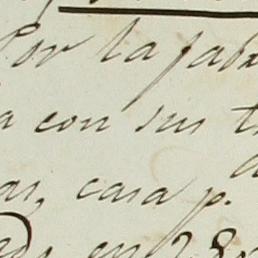 Por la fab
a con sus t
as, casa p.
en 28